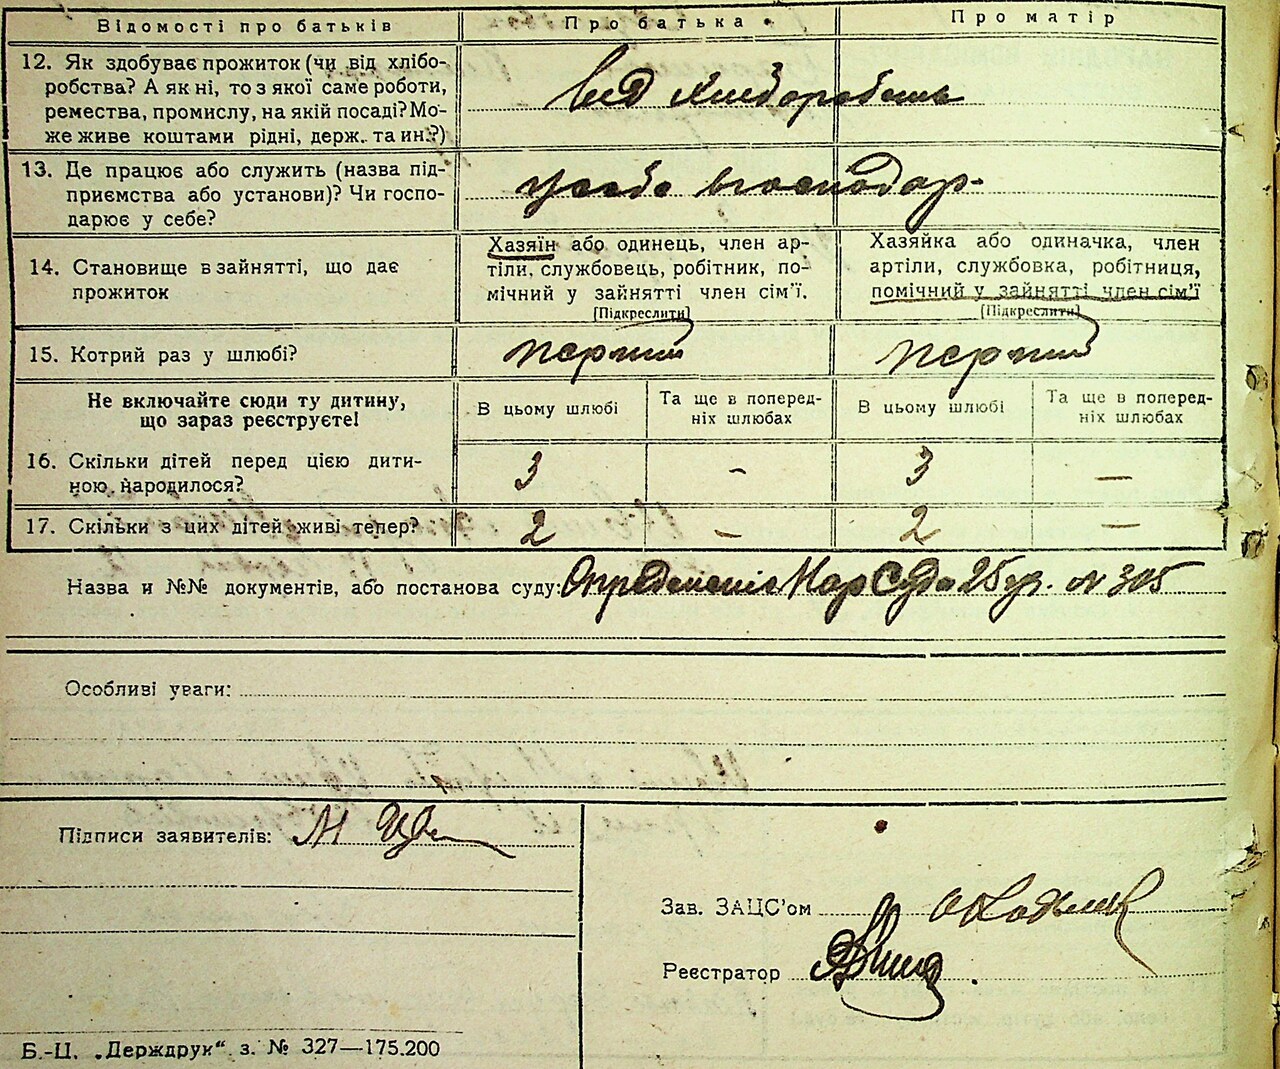 Відомості про батьків Про батька Про матір
12. Як здобуває прожиток (чи від хлібо-
робства? А як ні, то з якої саме роботи,
ремества, промислу, на якій посаді? Мо-
же живе коштами рідні, держ. та ин.?)
від хлеборобень
13. Де працює або служить (назва під-
приємства або установи)? Чи госпо-
дарює у себе?
усебе
14. Становище в зайнятті, що дає
прожиток
Хазяїн або одинець, член ар-
тіли, службовець, робітник, по-
мічний у зайнятті член сім'ї.
[Підкреслити]
Хазяйка або одиначка, член
артіли, службовка, робітниця,
помічний у зайнятті член сім'ї
[Підкреслити]
15. Котрий раз у шлюбі? перший перший
Не включайте сюди ту дитину,
що зараз реєструєте!
В цьому шлюбі
Та ще в поперед-
ніх шлюбах
В цьому шлюбі
Та ще в поперед-
ніх шлюбах
16. Скільки дітей перед цією дити-
ною народилося?
3 - 3 —
17. Скільки з цих дітей живі тепер? 2 - 2 —
Назва и №№ документів, або постанова суду: Определеніе Нар Суда 25 уч. № 305
Особливі уваги:
Підписи заявителів:
Зав. ЗАЦС'ом
Реєстратор
Б.-Ц. „Держдрук“ з. № 327—175.200